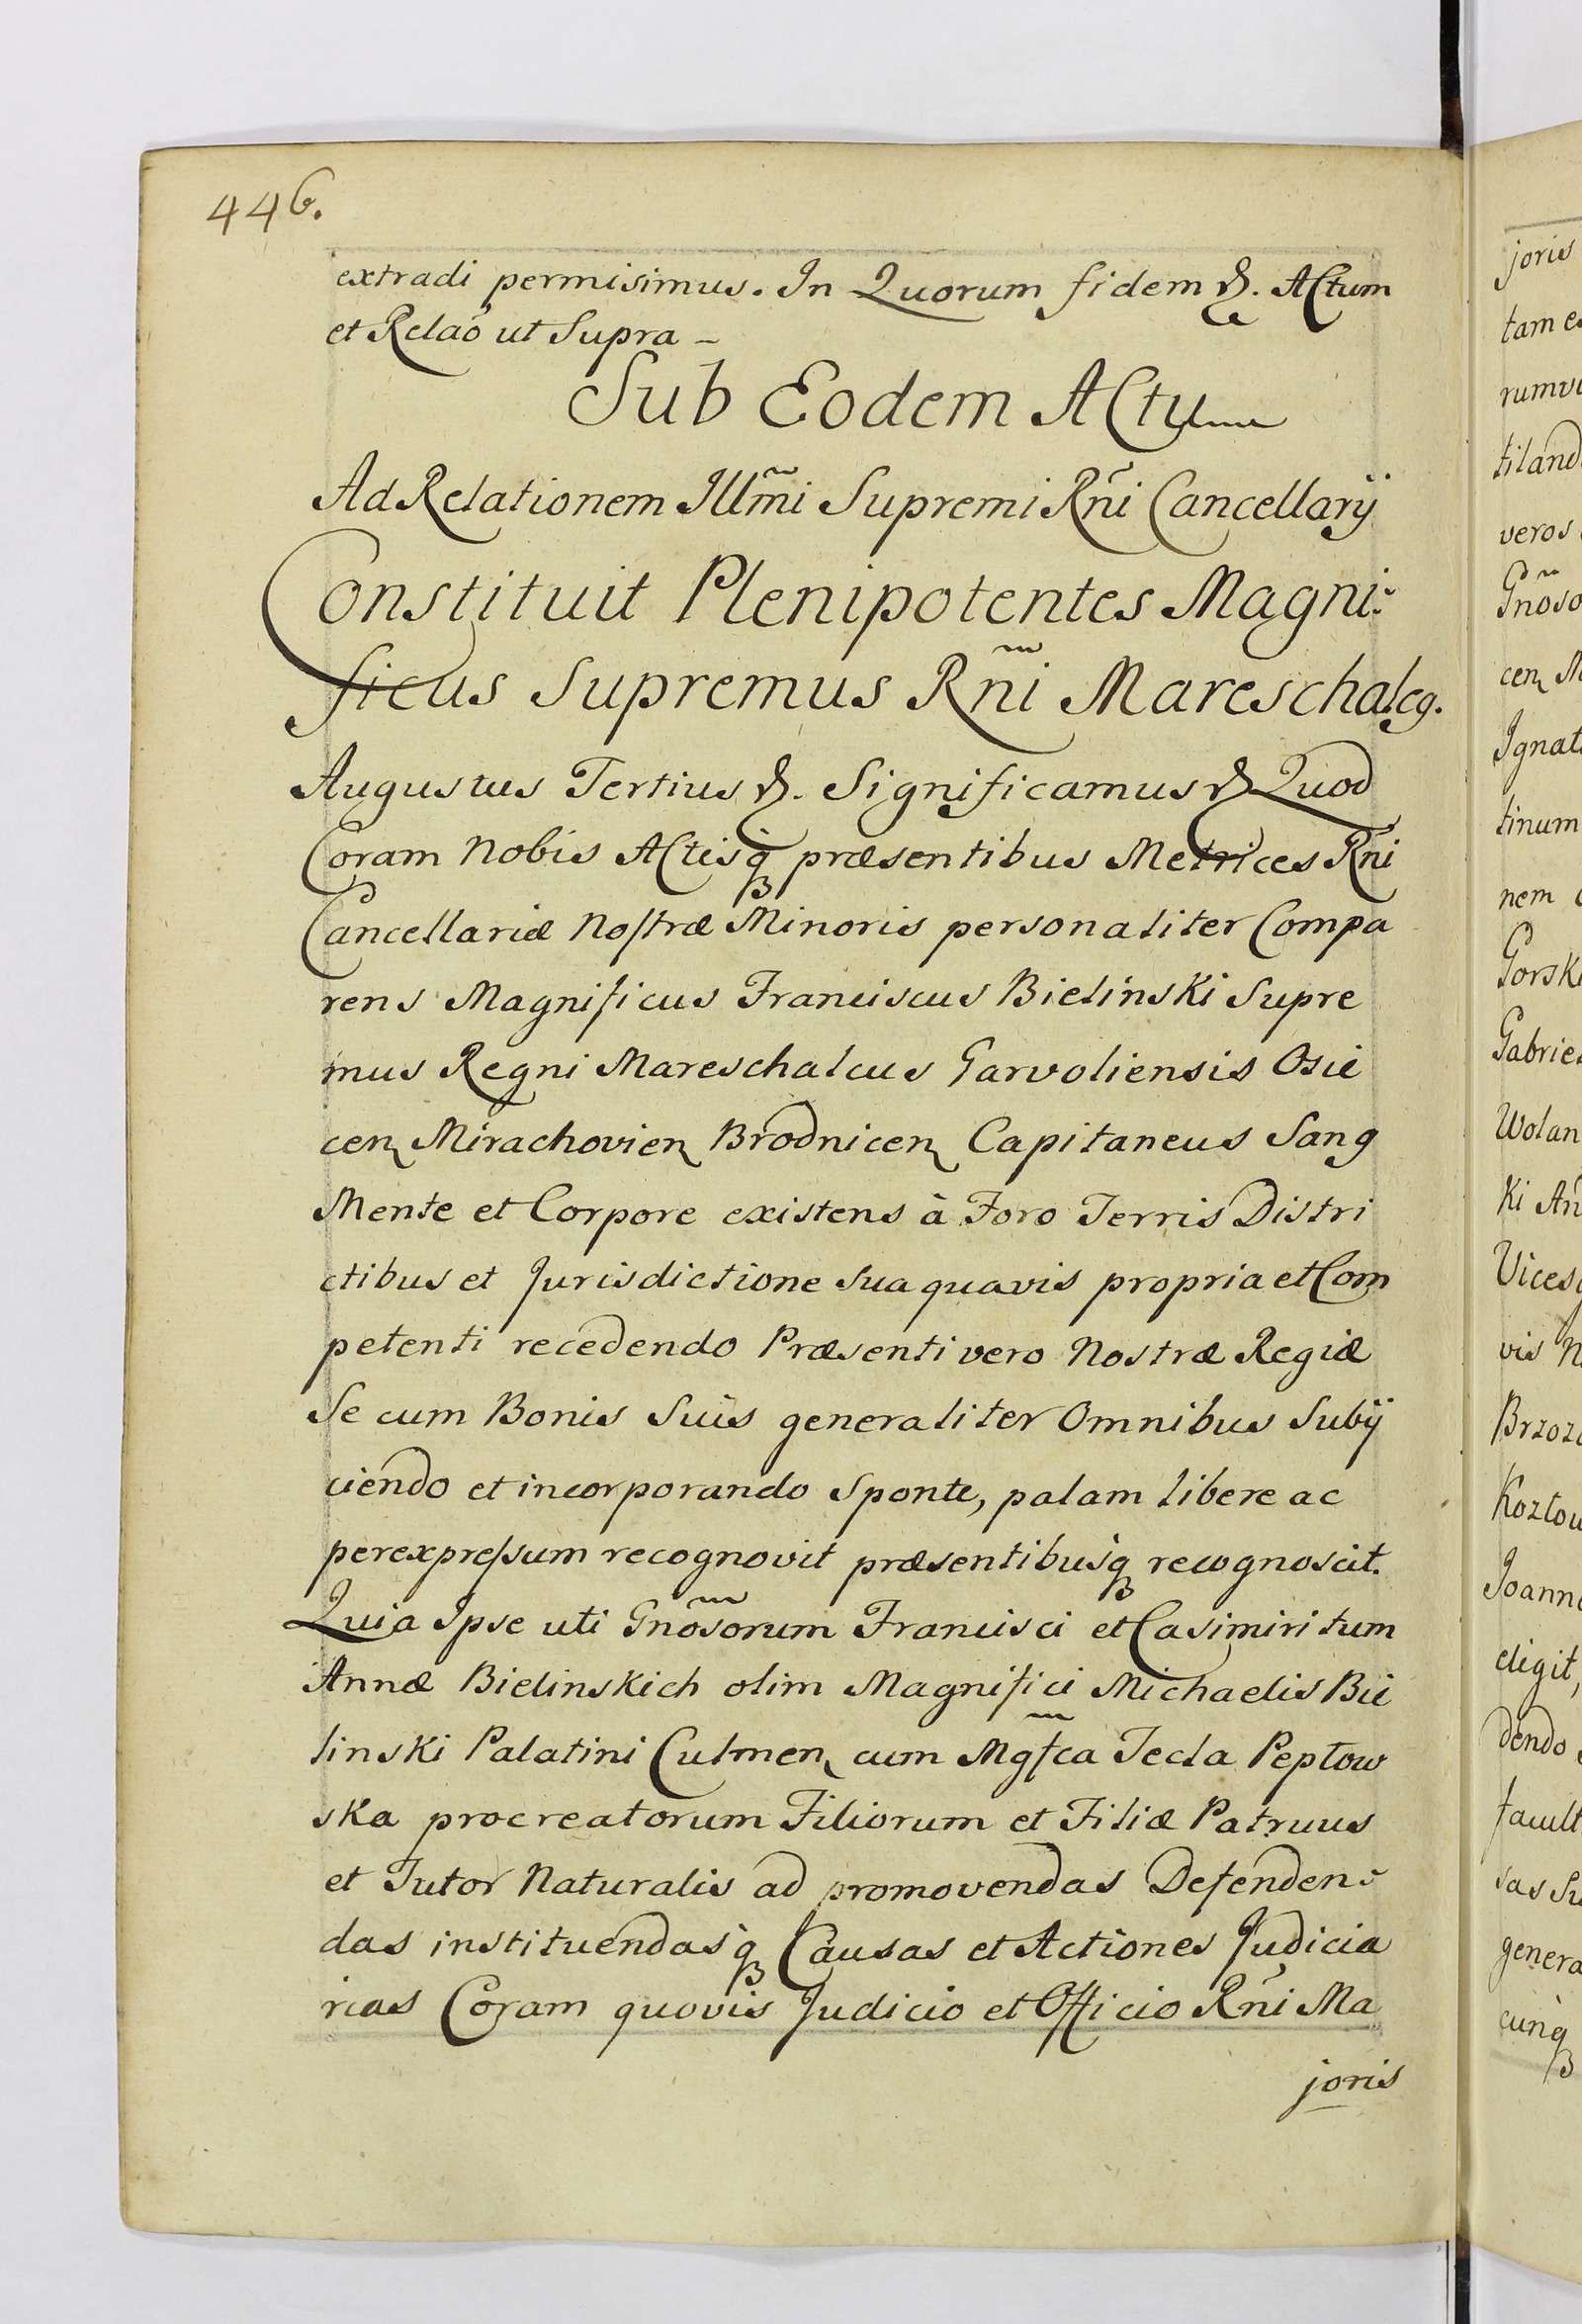 446.
extradi permisimus. In Quorum fidem &. Actum
et Relaõ ut Supra –
Sub Eodem Actu
Ad Relationem Illm̃i Supremi Rñi Cancellarij
Constituit Plenipotentes Magni-
ficus Supremus Rñi Mareschalcq.
Augustus Tertius &. Significamus & Quod
Coram Nobis Actisq̃ præsentibus Metrices Rñi
Cancellariæ Nostræ Minoris personaliter Compa
rens Magnificus Franciscus Bielinski Supre
mus Regni Mareschalcus Garvoliensis Osie
cen Mirachovien Brodnicen Capitaneus Sanq
Mente et Corpore existens à Foro Terris Distri
ctibus et Jurisdictione sua quavis propria et Com
petenti recedendo Præsenti vero Nostræ Regiæ
Se cum Bonis Suis generaliter Omnibus Subij
ciendo et incorporando Sponte, palam libere ac
perexpressum recognovit præsentibusq̃ recognoscit.
Quia Ipse uti Gnõsorum Francisci et Casimiri tum
Annæ Bielinskich olim Magnifici Michaelis Bie
linski Palatini Culmen cum Mgf̃ca Tecla Pepłow
ska procreatorum Filiorum et Filiæ Patruus
et Tutor Naturalis ad promovendas Defenden-
das instituendasq̃ Causas et Actiones Judicia
rias Coram quovis Judicio et Officio Rñi Ma
joris
joris
tam e
rumv
tiland
veros
Gñoso
cen M
Ignat
tinum
nem
Gorsk
Gabrie
Wolan
Ki An
Vices
vis N
Brzoz
Kozłow
Joann
eligit,
dendo
facult
sas Su
genera
cunq̃